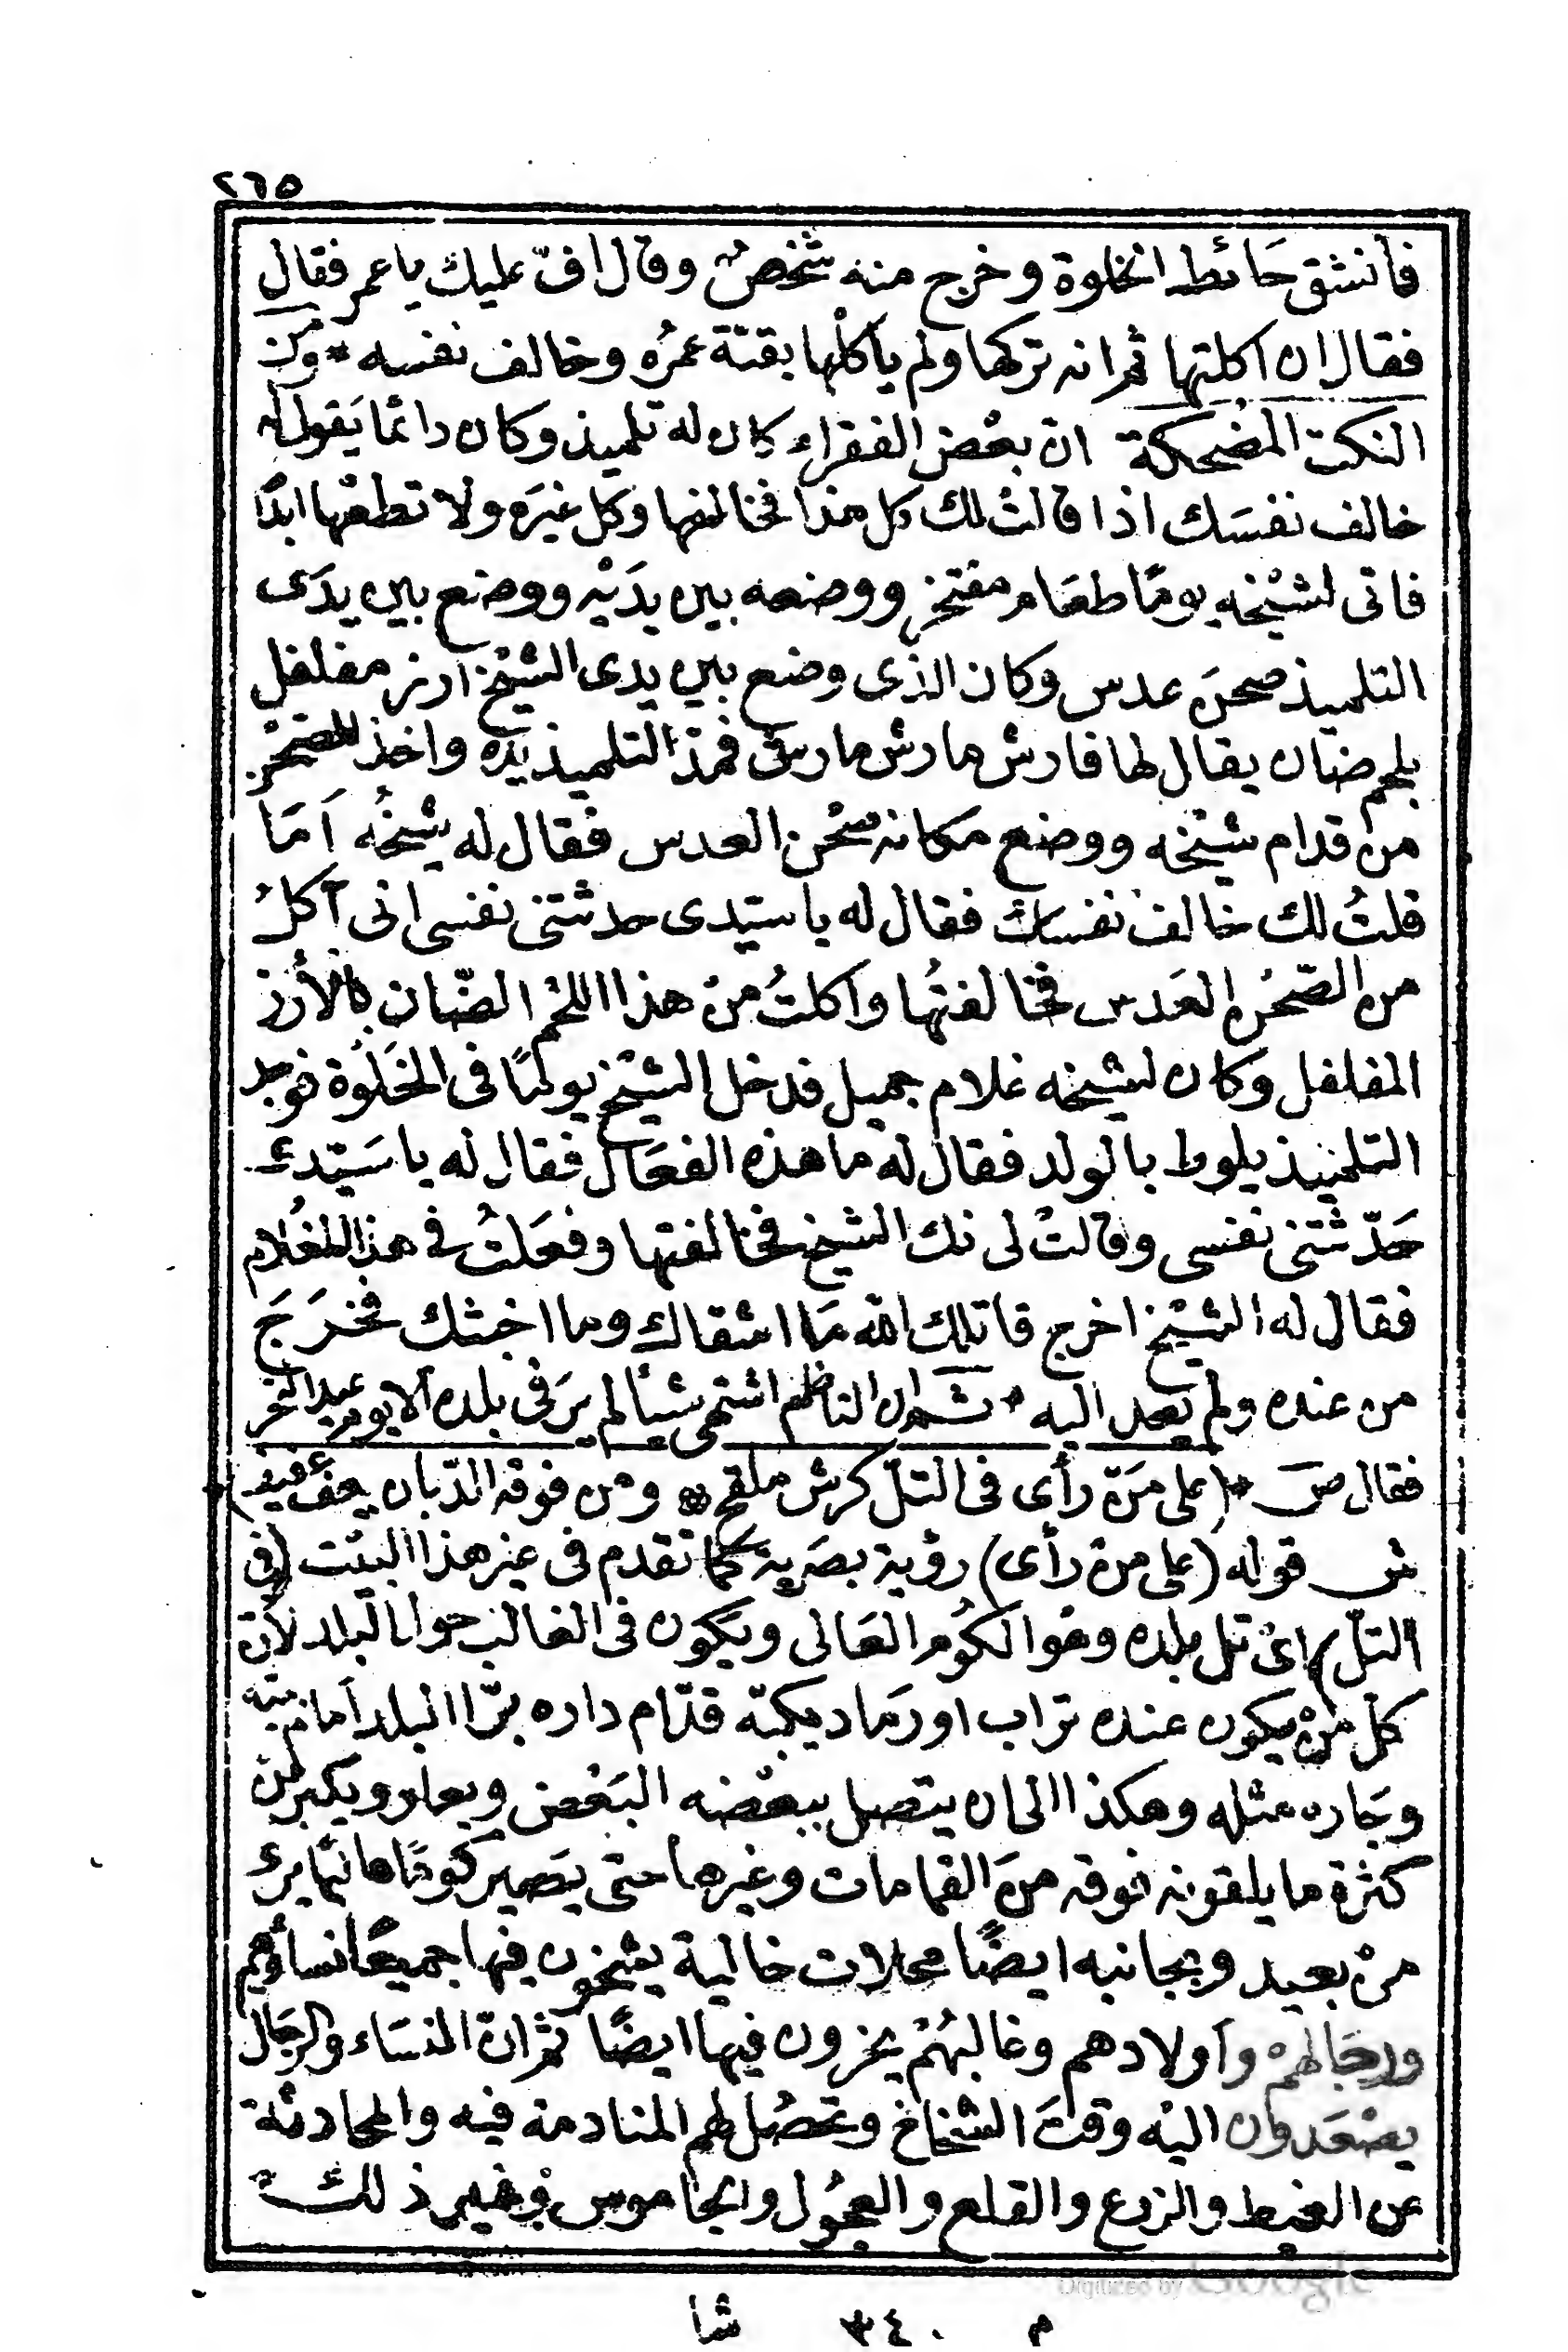 ٢٦٥
فأنشق حَائط الخلوة وخرج منه شخصٌ وقال افّ عليك ياعمر فقال
فقال ان اكلتها ثم انه تركها ولم يأكلْها بقيّة عمرُه وخالف نفسه * ومن
النكت المضحكة ان بعْض الفقراء كان له تلميذ وكان دائمًا يَقول له
خالف نفسَك اذا قالتْ لك كل هذا فخالفها وكل غيرَه ولا تطعْها ابدًا
فاتى لشيْخه يومًا طعَام مفتخر ووضعه بين يدَيْه ووضع بين يدَى
التلميذ صحنَ عدس وكان الذى وضع بين يدى الشيْخ ارز مفلفل
بلحم ضان يقال لها قارش مارش مارش فمدّ التلميذ يدَه واخذ الصّحن
من قدام شيْخه ووضع مكانه صحْن العدس فقال له شيخُه اَمَا
قلتُ لك خالف نفسك فقال له ياسيّدى حدثتنى نفسى انى آكلُ
من الصّحْن العَدس فخالفتُها واكلتُ منْ هذا اللحْم الضّان بالأرز
المفلفل وكان لشيخه غلام جميل فدخل الشيْخ يومًا فى الخَلوَة فوجد
التلميذ يلوط بالولد فقال له ما هذه الفعَال فقال له ياسَيّدى
حَدّثتنى نفسى وقالتْ لى نك الشيخ فخالفتها وفعَلتُ فى هذا الغُلام
فقال له الشيْخ اخرج قاتلك الله مَا اشقاك وما اخبثك فخرَجَ
من عنده ولم يعد اليه * ثم ان الناظم اشتهى شيأ لم يرَ فى بلده الا يوم عيد النحر
فقال ص * (على مَنْ رأى فى التلّ كرش ملقح * ومن فوقه الدّبان يحف )
ش قوله (على من رأى) رؤية بصَرية كما تقدم فى غير هذا البيْت (فى
التلّ) اىْ تل بلده وهُو الكُوم العَالى ويكون فى الغالب حوال البلد لانّ
كلّ منْ يكون عنده تراب اورمَاد يكبّه قدّام داره برّا البلد امام بيته
وجاره مثله وهكذا الى ان يتصل ببعْضه البَعْض ويعلو ويكبر من
كثرة ما يلقونه فوقه منَ القمامات وغيرها حتى يَصير كومًا يرى
منْ بعيد وبجانبه ايضًا محلات خالية يشخون فيها جميعًا نساؤهم
ورجَالهمْ واولادهم وغالبهُمْ يخرون فيها ايضًا ثم انّ النسَاء والرجَال
يصْعَدون اليْه وقتَ الشخاخ وتحصُل لهم المنادمة فيه والمحادثة
عن الغيط والزرع والقلع والعجُول والجاموس وغير ذلك
م ٣٤٠ شا